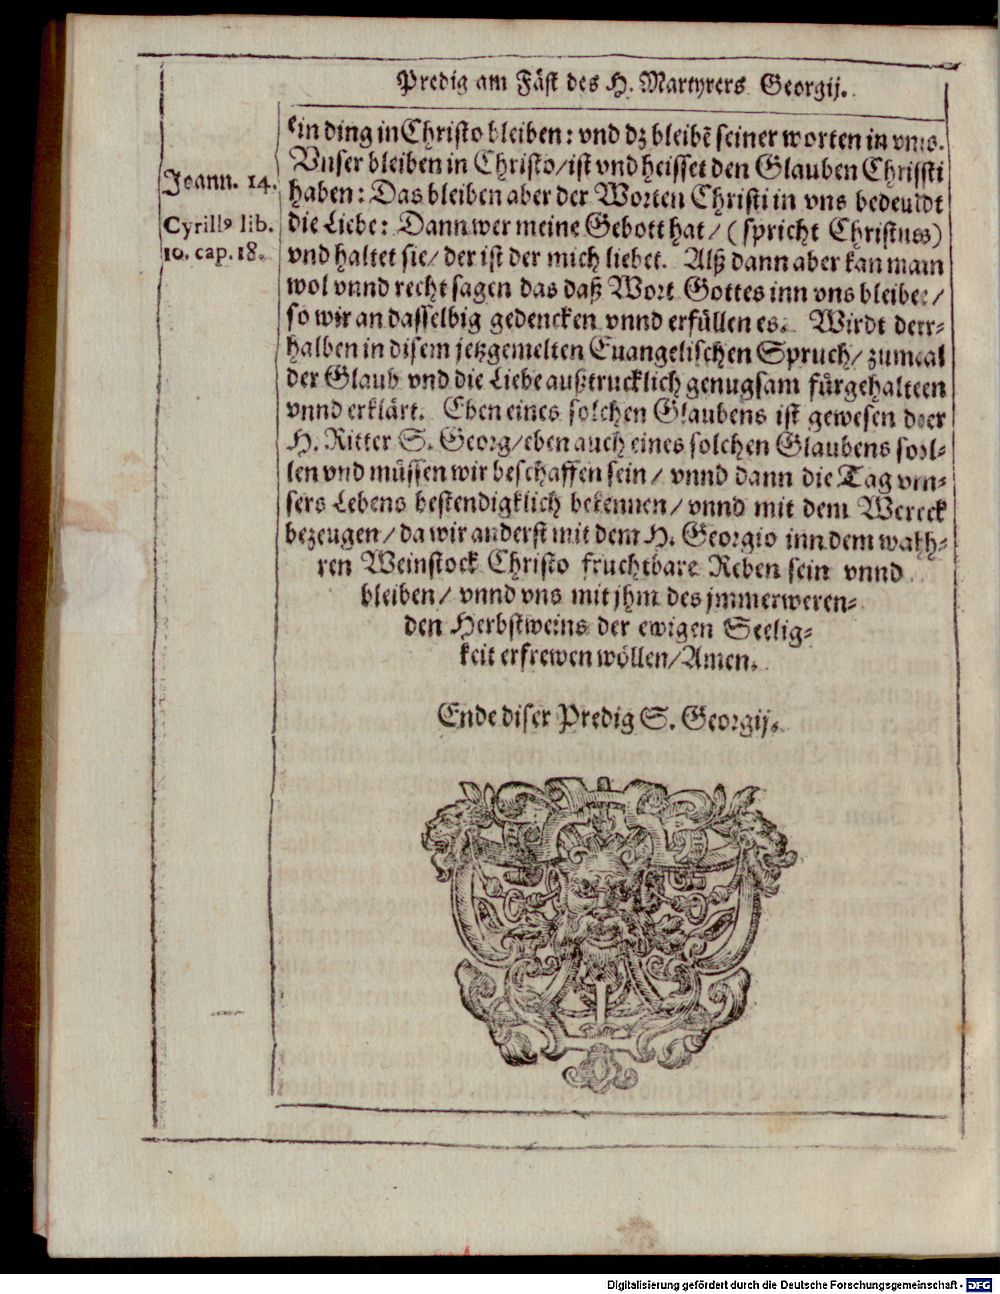 Predig am Fäst des H. Martyrers Georgij.
ein ding in Christo bleiben: vnd dz bleibē seiner worten in vnns.
Vnser bleiben in Christo/ist vnd heisset den Glauben Christi
Joann. 14.
haben: Das bleiben aber der Worten Christi in vns bedeudt
Cyrill9 lib.
die Liebe: Dann wer meine Gebott hat/ (spricht Christus)
10. cap. 18.
vnd haltet sie/ der ist der mich liebet. Alß dann aber kan mann
wol vnnd recht sagen das daß Wort Gottes inn vns bleibet/
so wir an dasselbig gedencken vnnd erfüllen es. Wirdt der-
halben in disem jetzgemelten Euangelischen Spruch/ zumal
der Glaub vnd die Liebe außtrucklich genugsam fürgehalten
vnnd erklärt. Eben eines solchen Glaubens ist gewesen der
H. Ritter S. Georg/eben auch eines solchen Glaubens sol-
len vnd müssen wir beschaffen sein/ vnnd dann die Tag vn-
sers Lebens bestendigklich bekennen/ vnnd mit dem Werck
bezeugen/ da wir anderst mit dem H. Georgio inn dem wah-
ren Weinstock Christo fruchtbare Reben sein vnnd
bleiben/ vnnd vns mit jhm des jmmerweren-
den Herbstweins der ewigen Seelig-
keit erfrewen wöllen/Amen.
Ende diser Predig S. Georgij.
Digitalisierung gefördert durch die Deutsche Forschungsgemeinschaft - DFG